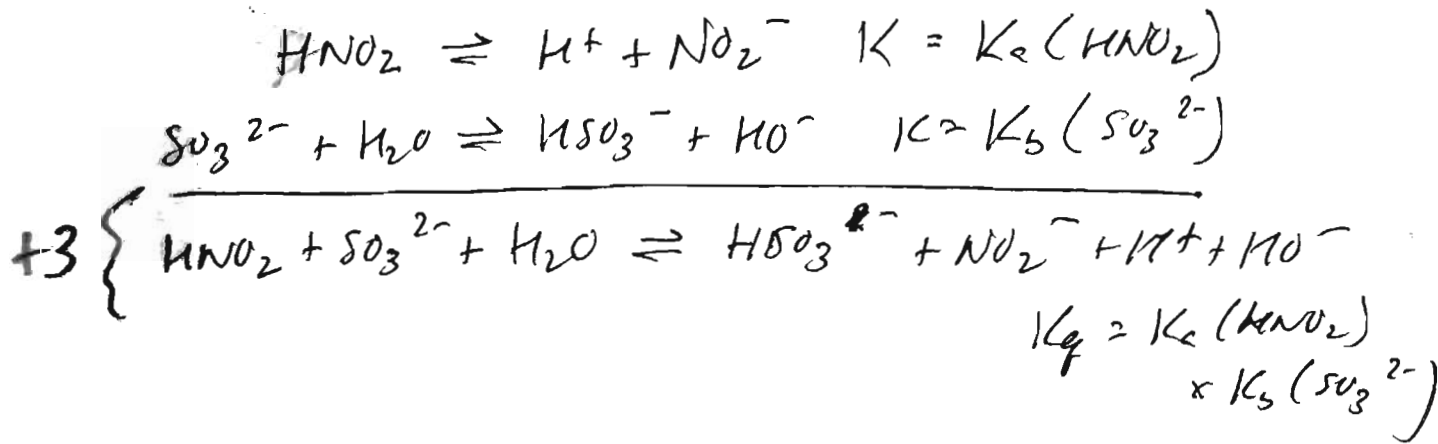 HNO₂ ⇌ H⁺ + NO₂⁻ K = Ka(HNO₂)
SO₃²⁻ + H₂O ⇌ HSO₃⁻ + HO⁻ K = Kb(SO₃²⁻)
+3 { HNO₂ + SO₃²⁻ + H₂O ⇌ HSO₃⁻ + NO₂⁻ + H⁺ + HO⁻
Keq = Ka(HNO₂)
x Kb(SO₃²⁻)